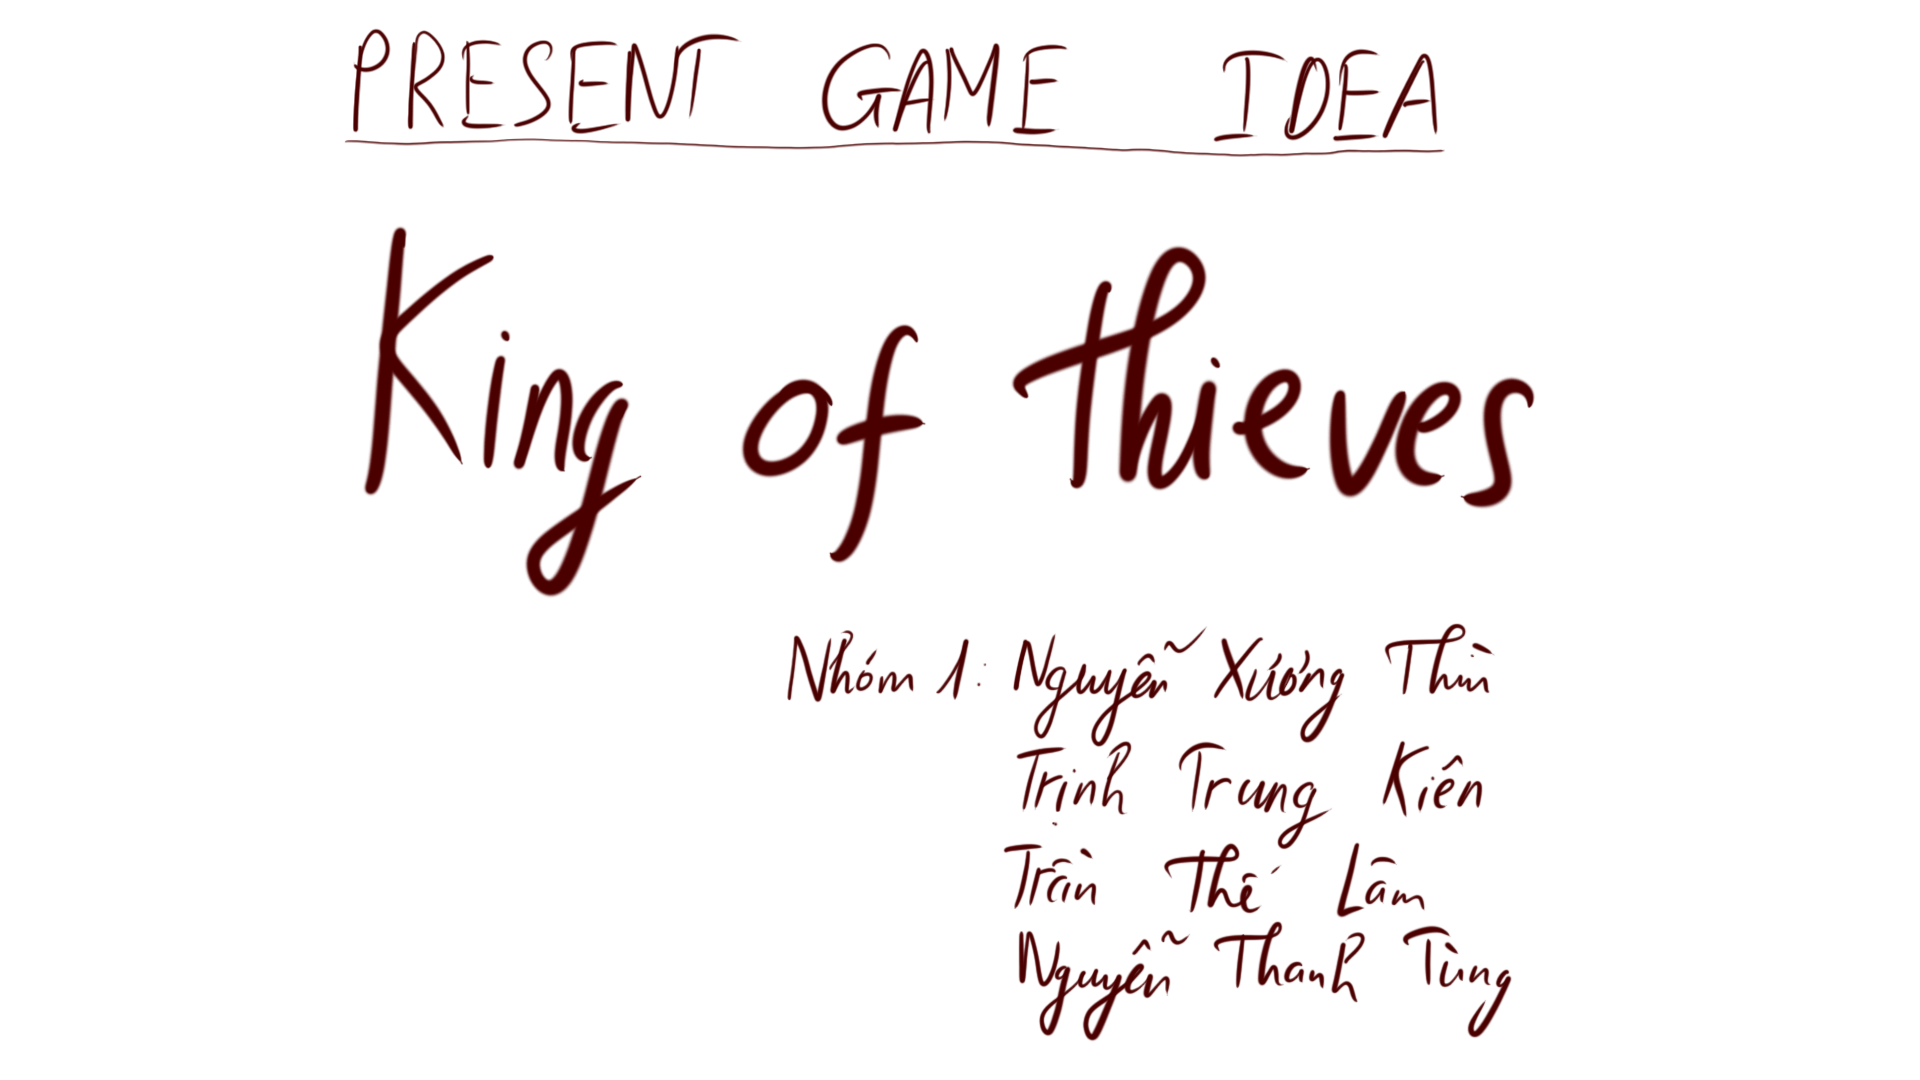 PRESENT GAME IDEA
King of thieves
Nhóm 1: Nguyễn Xương Thìn
Trịnh Trung Kiên
Trần Thế Lâm
Nguyễn Thanh Tùng